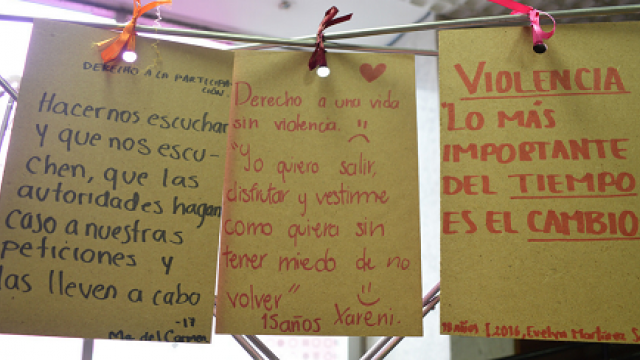 DERECHO A LA PARTICIPA-
CIÓN
Hacernos escuchar
y que nos escu-
chen, que las
autoridades hagan
caso a nuestras
peticiones y
las lleven a cabo
-17
Ma. del Carmen
Derecho a una vida
sin violencia.
"Yo quiero salir,
disfrutar y vestirme
como quiera sin
tener miedo de no
volver"
15 años Xareni.
VIOLENCIA
"LO MÁS
IMPORTANTE
DEL TIEMPO
ES EL CAMBIO
18 años [2016, Evelyn Martínez S